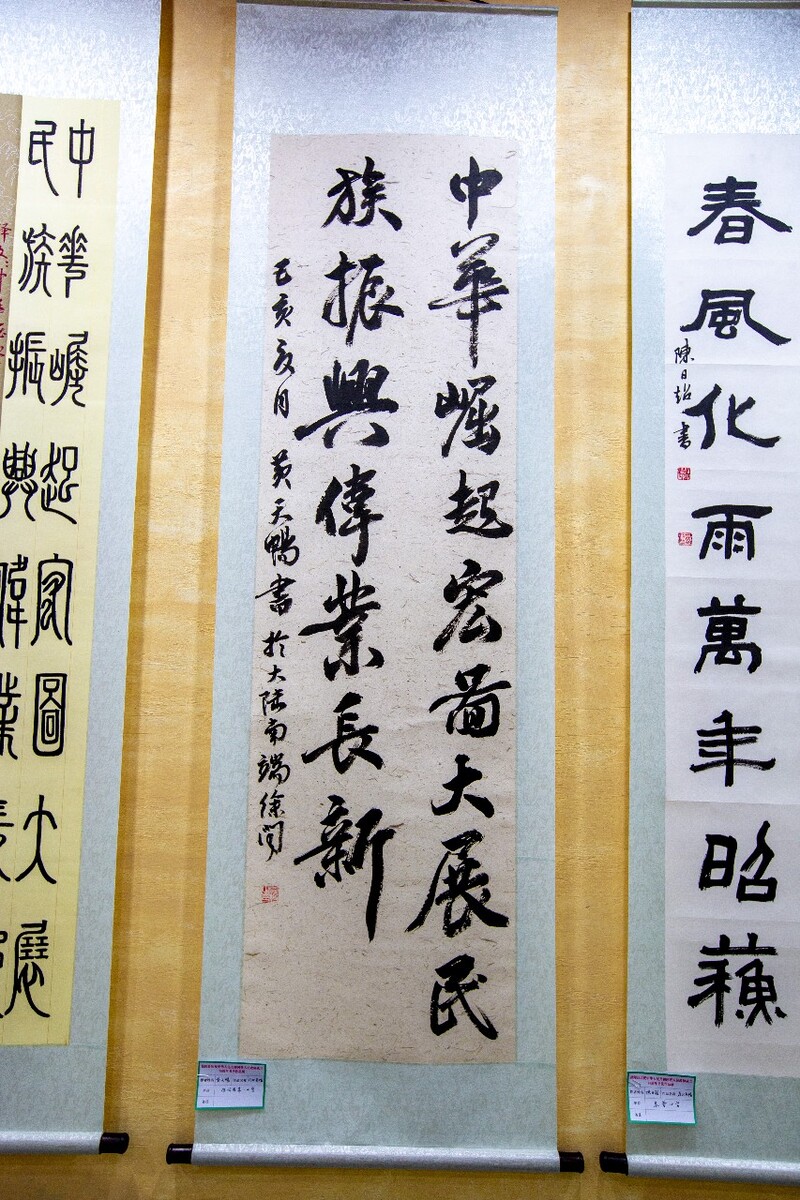 春風化雨萬年昭蘓
陳日超書
中華崛起宏啚大展民
族振興偉業長新
己亥夏月 黄天暢書於大陸南端徐闻
中華崛起宏圖大展
民族振興偉業長